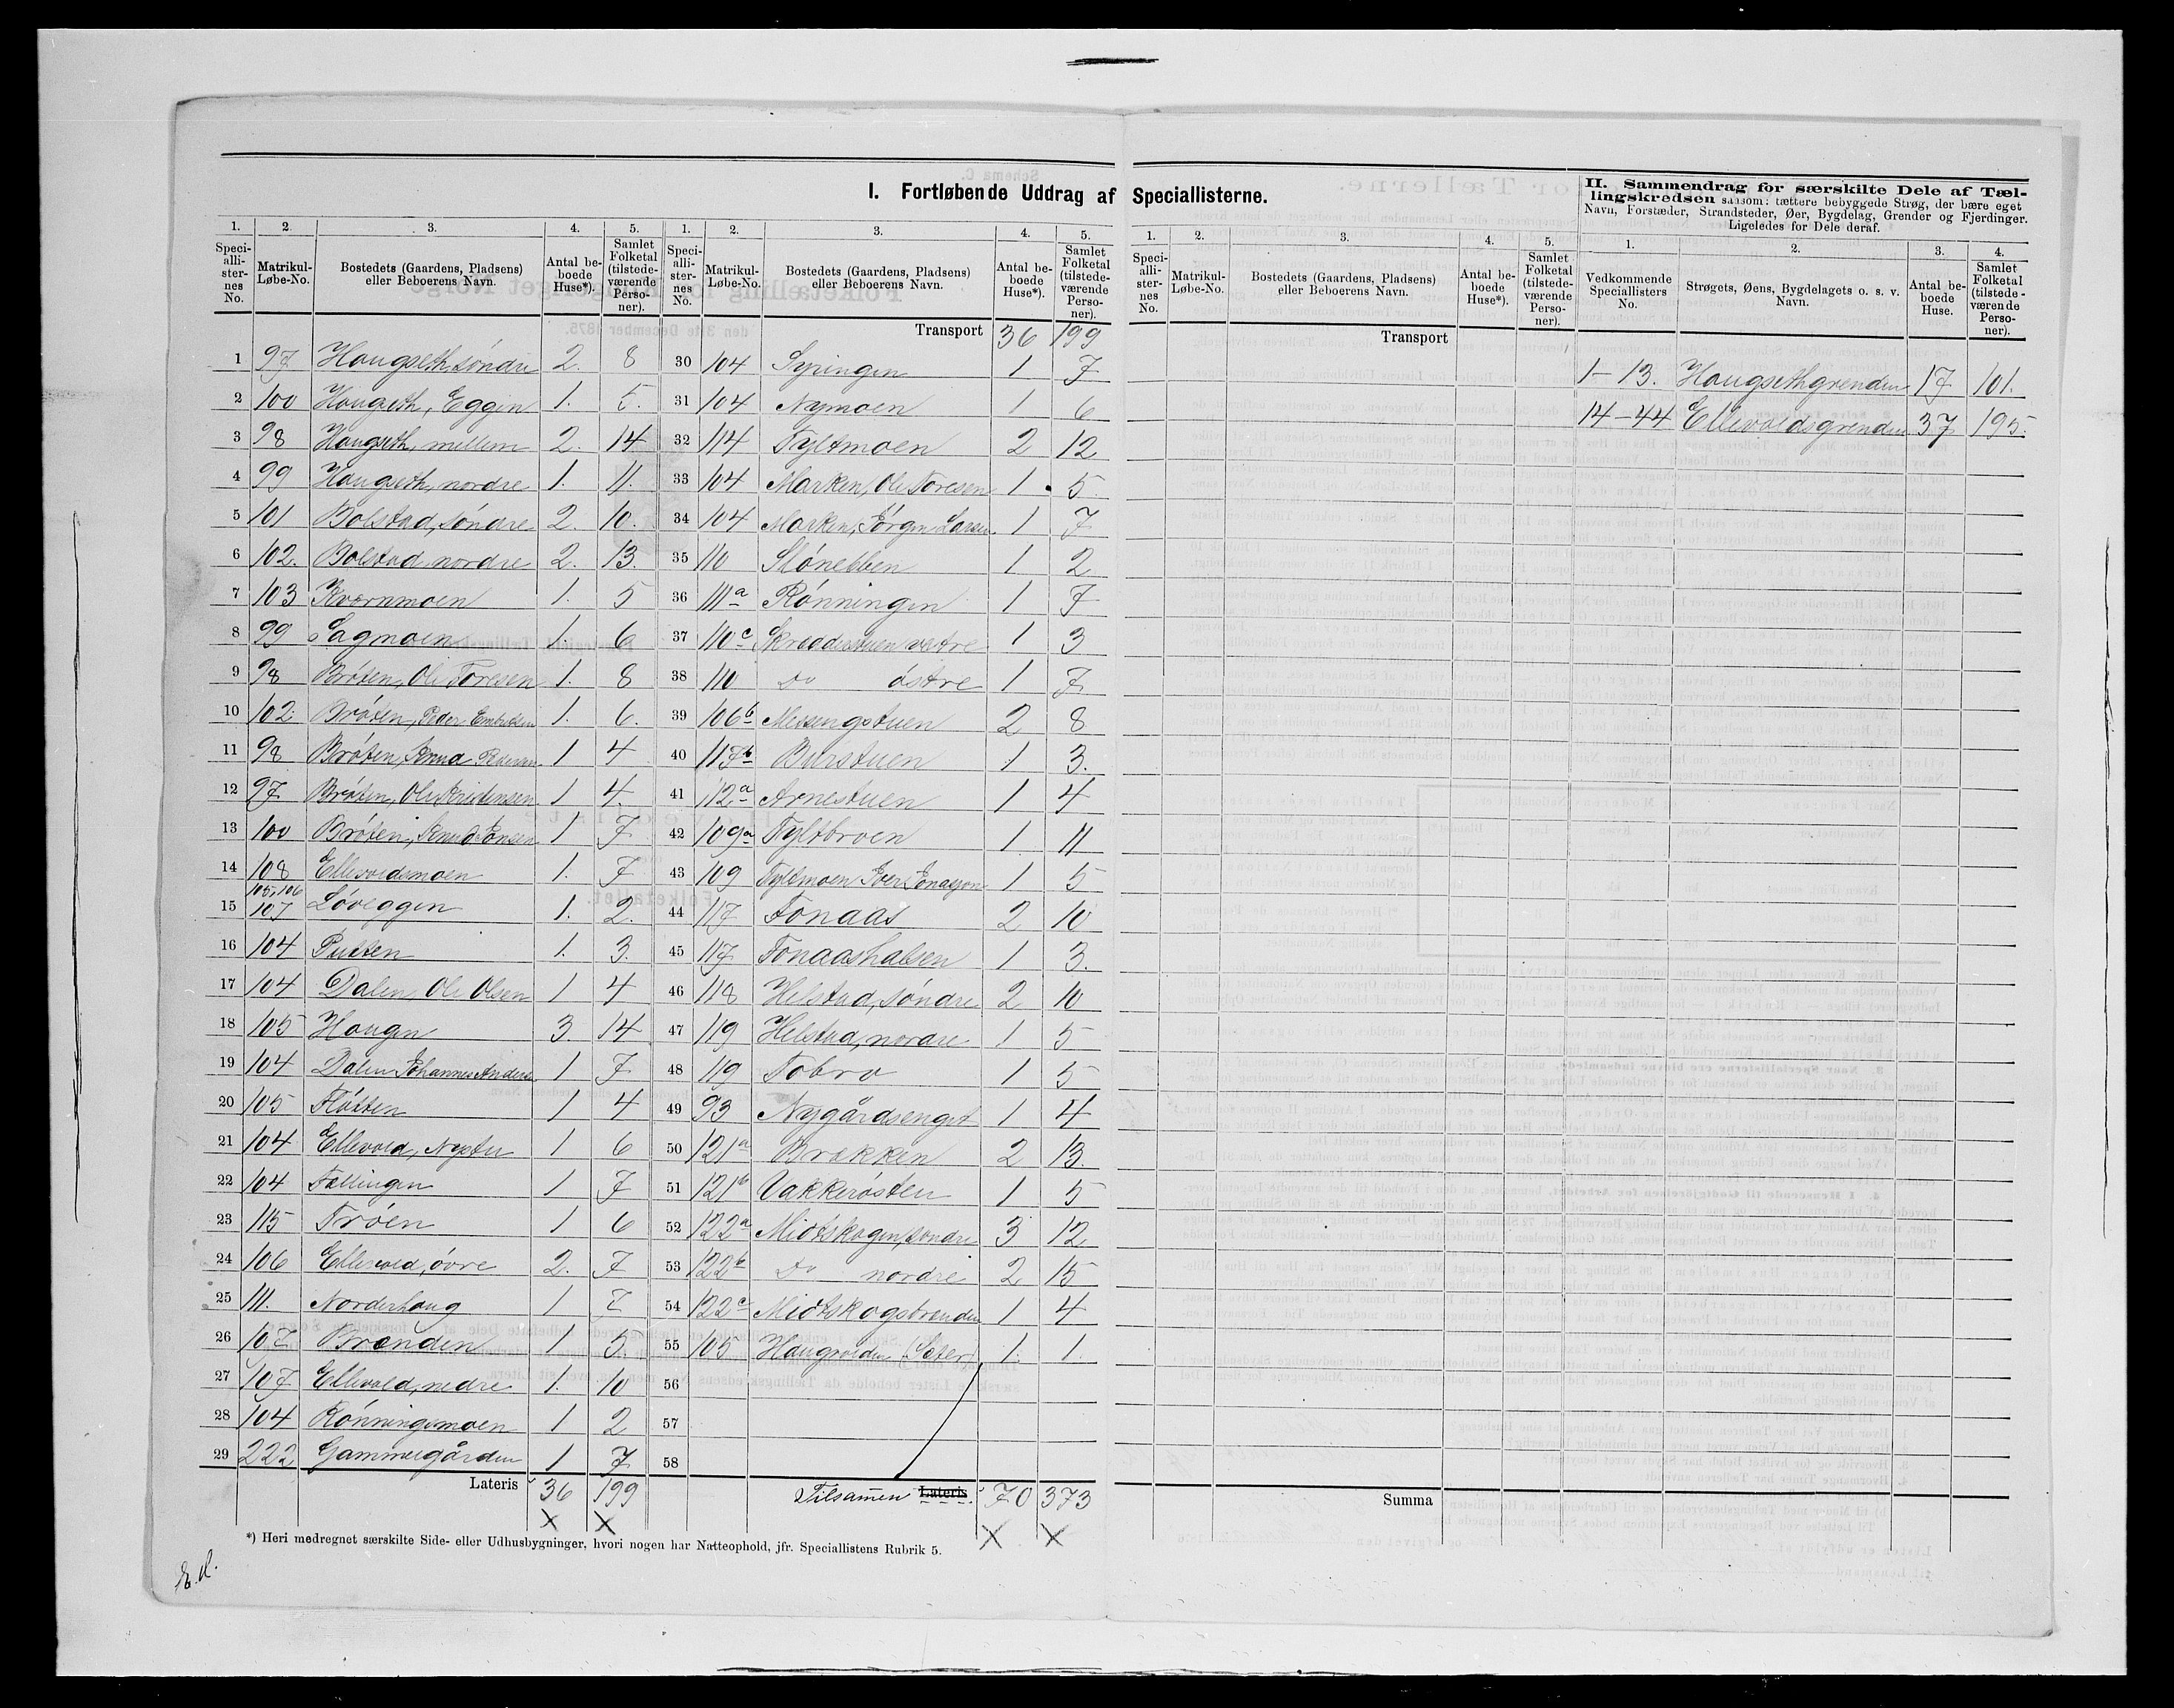 I. Fortløbende Uddrag af Speciallisterne.
II. Sammendrag for særskilte Dele af Tæl-
lingskredsen saasom: tættere bebyggede Strøg, der bære eget
Navn, Forstæder, Strandsteder, Øer, Bygdelag, Grender og Fjerdinger.
Ligeledes for Dele deraf.
1. 2. 3. 4. 5. 1. 2. 3. 4. 5. 1. 2. 3. 4. 5. 1. 2. 3. 4.
Speciallisternes No. Matrikul-Løbe-No. Bostedets (Gaardens, Pladsens) eller Beboerens Navn. Antal beboede Huse*). Samlet Folketal (tilstedeværende Personer).
Speciallisternes No. Matrikul-Løbe-No. Bostedets (Gaardens, Pladsens) eller Beboerens Navn. Antal beboede Huse*). Samlet Folketal (tilstedeværende Personer).
Speciallisternes No. Matrikul-Løbe-No. Bostedets (Gaardens, Pladsens) eller Beboerens Navn. Antal beboede Huse*). Samlet Folketal (tilstedeværende Personer).
Vedkommende Speciallisters No. Strøgets, Øens, Bygdelagets o. s. v. Navn. Antal beboede Huse. Samlet Folketal (tilstedeværende Personer).
1 97 Haugseth søndre 2. 8
2 100 Haugseth, Eggen 1. 5.
3 98 Haugseth, mellem 2. 14
4 99 Haugseth, nordre 1. 11.
5 101 Bolstad, søndre 2. 10.
6 102. Bolstad nordre 2. 13.
7 103 Kvernmoen 1. 5
8 99 Sagmoen 1. 6
9 98 Bröten, Ole Toresen 1. 8
10 102. Bröten, Peder Embretsen 1. 6.
11 98 Bröten, 1 4
12 97 Bröten, Ole Kristensen 1 4.
13 100 Bröten, Knud Jonsen 1 7
14 108 Ellevoldsmoen 1. 7
15 105, 106 107 Löveggen 1. 2.
16 104 Putten 1. 3.
17 104 Dalen Ole Olsen 1 4
18 105 Haugen 3. 14
19 104 Dalen Johannes Anders. 1 7
20 105 Flötten 1 4
21 104 Ellevold, Nystu 1 6
22 104 Fallingen 1 7
23 115 Tröen 1 6
24 106 Ellevold, övre 2. 7
25 111. Norderhaug 1 7
26 107 Brænden 1 5
27 107 Ellevold, nedre 1. 10
28 104 Rönningsmoen 1 2
29 222 Gammelgården 1 7
Lateris 36 199
X X
Transport 36 199
30 104 Syringen 1 7
31 104 Nymoen 1 6
32 114 Tyltmoen 2 12
33 104 Marken, Ole Toresen 1 5.
34 104 Marken, Jörgen Larsen 1 7
35 110 Slönebben 1 2
36 111a Rönningen 1 7
37 110c Skræderstuen vestre 1 3
38 110 Do östre 1 7
39 106b Messengstuen 2 8
40 117b Burstuen 1 3.
41 112a Arnestuen 1 4
42 109a Tyltbroen 1 11
43 109 Tyltmoen Iver Jonasson 1 5
44 117 Tonaas 2 10
45 117 Tonaashalsen 1 3.
46 118 Helstad, söndre 2 10
47 119 Helstad, nordre 1 5
48 119 Tobro 1 5
49 93 Nygårdsenget 1 4
50 121a Brækken 2 13.
51 121b Vakkerösten 1 5
52 122a Midtskogen, söndre 3 12
53 122b Do nordre 2 15
54 122c Midtskogstrenden 1 4
55 105 Haugvolden (Sæter) 1. 1.
56
57
58
Tilsamen Lateris. 70 373
X X
Transport
Summa
1–13. Haugsethgrenden 17 101.
14–44 Ellevoldsgrenden 37 195.
*) Heri medregnet særskilte Side- eller Udhusbygninger, hvori nogen har Natteophold, jfr. Speciallistens Rubrik 5.